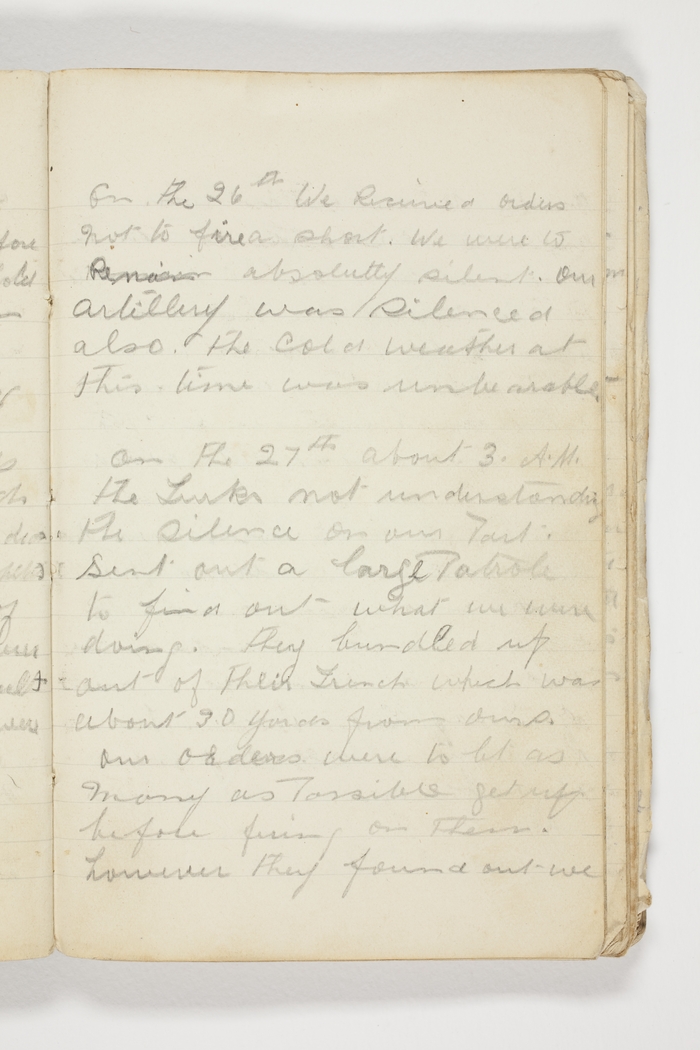 On the 26th We Recieved orders
not to fire a short. We were to
Remain absolutly silent. our
artillery was silenced
also. The Cold weather at
this time was unbearable
On the 27th about 3. A.M.
the Turks not understanding
the silence on our Part.
Sent out a large Patrole
to find out what we were
doing. They bundled up
out of their Trench which was
about 30 yards from ours.
our orders were to let as
many as Possible get up
before firing on them.
however they found out we